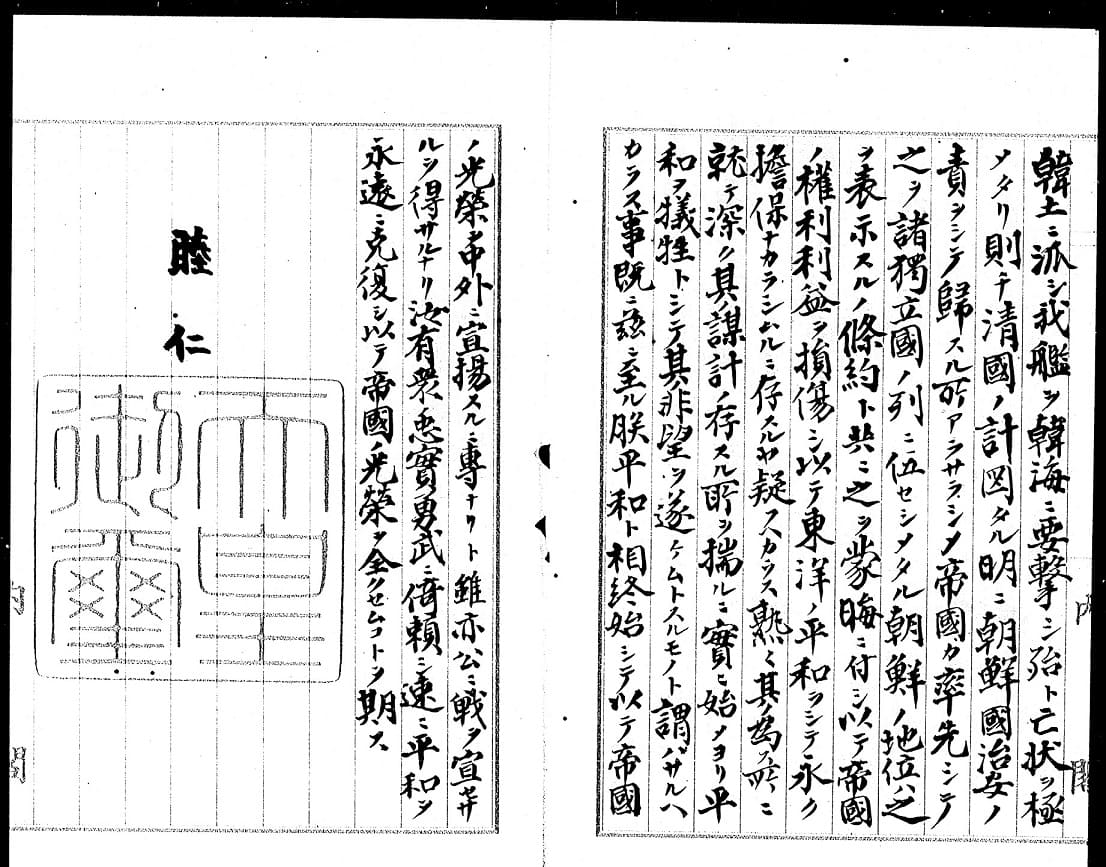 韓土ニ派シ我艦ヲ韓海ニ要撃シ殆ト亡状ヲ極
メタリ則チ清國ノ計図タル明ニ朝鮮國治安ノ
責ヲシテ歸スル所アラサラシメ帝國カ率先シテ
之ヲ諸獨立國ノ列ニ伍セシメタル朝鮮ノ地位ハ之
ヲ表示スルノ條約ト共ニ之ヲ蒙晦ニ付シ以テ帝國
ノ權利利益ヲ損傷シ以テ東洋ノ平和ヲシテ永ク
擔保ナカラシムルニ存スルヤ疑フスカラス熟々其ノ為ス所ニ
就テ深ク其ノ謀計ノ存スル所ヲ揣ルニ實ニ始メヨリ平
和ヲ犠牲トシテ其非望ヲ遂ケムトスルモノト謂ハサルヘ
カラス事既ニ茲ニ至ル朕平和ト相終始シテ以テ帝國
ノ光榮ヲ中外ニ宣揚スルニ專ナリト雖亦公ニ戰ヲ宣セサ
ルヲ得サルナリ汝有衆ノ忠實勇武ニ倚頼シ速ニ平和ヲ
永遠ニ克復シ以テ帝國ノ光榮ヲ全クセムコトヲ期ス
睦仁
天皇
御璽
内
閣
内
閣